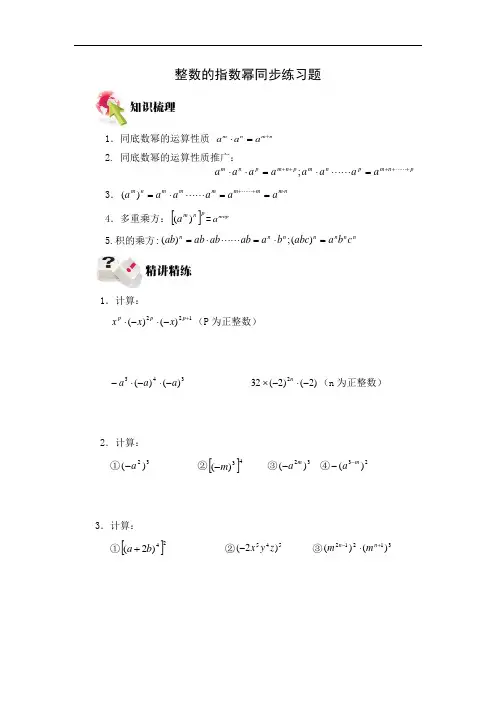 整数的指数幂同步练习题
知识梳理
1．同底数幂的运算性质 $a^m \cdot a^n = a^{m+n}$
2. 同底数幂的运算性质推广：
$a^m \cdot a^n \cdot a^p = a^{m+n+p}; a^m \cdot a^n \cdots\cdots a^p = a^{m+n+\cdots\cdots+p}$
3．$(a^m)^n = a^m \cdot a^m \cdots\cdots a^m = a^{m+\cdots\cdots+m} = a^{m \cdot n}$
4．多重乘方：$[(a^m)^n]^p = a^{mnp}$
5.积的乘方: $(ab)^n = ab \cdot ab \cdots\cdots ab = a^n \cdot b^n; (abc)^n = a^n b^n c^n$
精讲精练
1．计算：
$x^p \cdot (-x)^{2p} \cdot (-x)^{2p+1}$（P 为正整数）
$-a^3 \cdot (-a)^4 \cdot (-a)^3$ $32 \times (-2)^{2n} \cdot (-2)$（n 为正整数）
2．计算：
①$(-a^2)^3$ ②$[(-m)^3]^4$ ③$(-a^{2m})^3$ ④$-(a^{3-m})^2$
3．计算：
①$[(a+2b)^4]^2$ ②$(-2x^5y^4z)^5$ ③$(m^{2n-1})^2 \cdot (m^{n+1})^3$